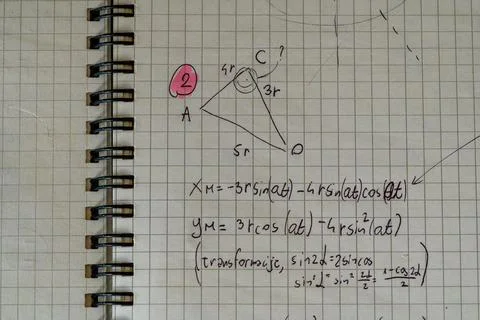 C ?
4r
2
3r
A
O
5r
XM=-3rsin(at)-4rsin(at)cos(at)
yM= 3rcos(at)-4rsin²(at)
(transformacije, sin2α=2sincos
sin²α=sin² 2α/2 = 1-cos2α/2)